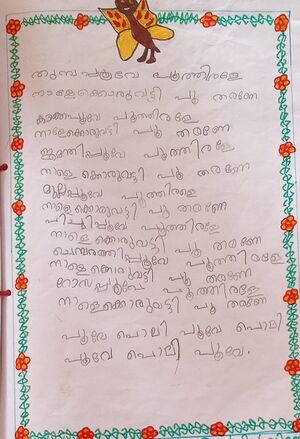 തുമ്പപ്പൂവേ പൂത്തിരളേ
നാളേക്കൊരുവട്ടി പൂ തരണേ
കാക്കപ്പൂവേ പൂത്തിരളേ
നാളേക്കൊരുവട്ടി പൂ തരണേ
ജമന്തിപ്പൂവേ പൂത്തിരളേ
നാളെക്കൊരുവട്ടി പൂ തരണേ
മുല്ലപ്പൂവേ പൂത്തിരളേ
നാളെക്കൊരുവട്ടി പൂ തരണേ
പിച്ചിപ്പൂവേ പൂത്തിരളേ
നാളെക്കൊരുവട്ടി പൂ തരണേ
ചെമ്പരത്തിപ്പൂവേ പൂത്തിരളേ
നാളെക്കൊരുവട്ടി പൂ തരണേ
റോസപ്പൂവേ പൂത്തിരളേ
നാളെക്കൊരുവട്ടി പൂ തരണേ
പൂവേ പൊലി പൂവേ പൊലി
പൂവേ പൊലി പൂവേ.